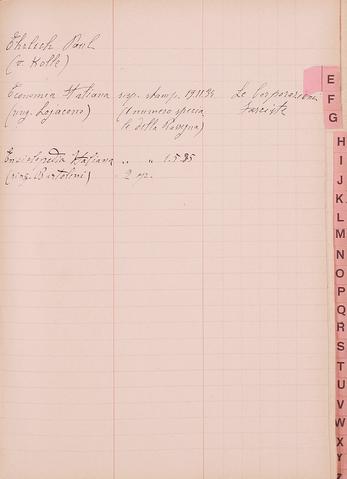 Ehrlich Paul
(v. Kolle)
Economia Italiana rsp. stamp. 19.11.34 Le Corporazioni
(ing. Lojacono) (1 numero specia Fasciste
le della Rassegna)
Enciclopedia Italiana " " 1.5.35
(ing. Bartolini) 2 op.
E
F
G
H
I
J
K
L
M
N
O
P
Q
R
S
T
U
V
W
X
Y
Z